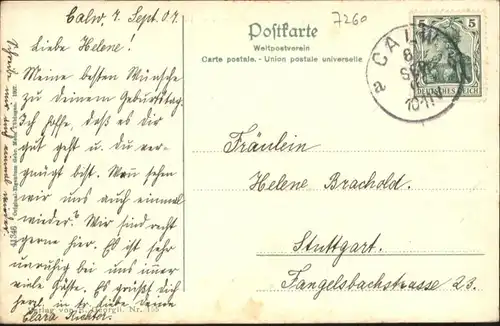 Calw, 7. Sept. 07.
Liebe Helene!
Meine besten Wünsche
zu Deinem Geburtstag.
Ich hoffe, daß es dir
gut geht u. du ver-
gnügt bist. Wann sehen
wir uns auch einmal
wieder? Wir sind recht
gerne hier. Es ist sehr
unruhig bei uns immer
viele Gäste. Es grüßt dich
herzl. in tr. Liebe Deine
Clara Richter.
Schreib mir
auch einmal
Postkarte
Weltpostverein
Carte postale. - Union postale universelle
7260
CALW
a
SEP.
5
5
DEUTSCHES REICH
Fräulein
Helene Brachold.
Stuttgart.
Tangelsbachstrasse 23.
Verlag von Georgii. Nr. 155
41346